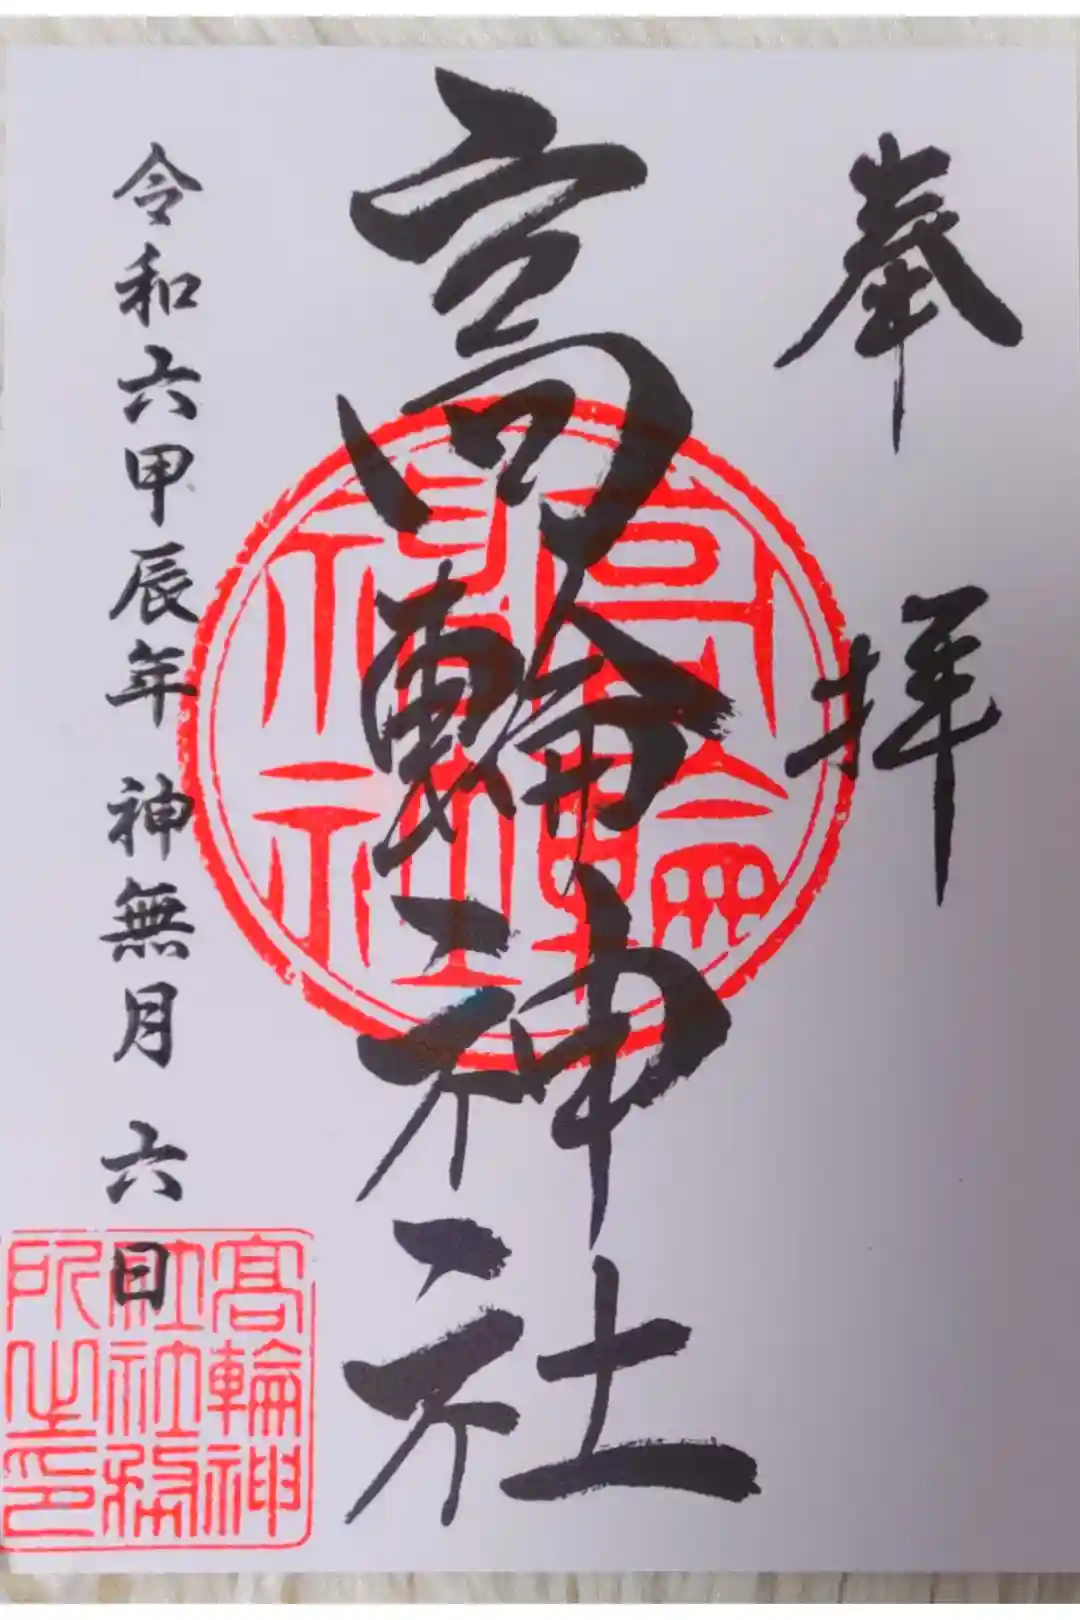 奉拝
高輪神社
高輪神社
令和六甲辰年 神無月 六日
高輪神社社務所之印